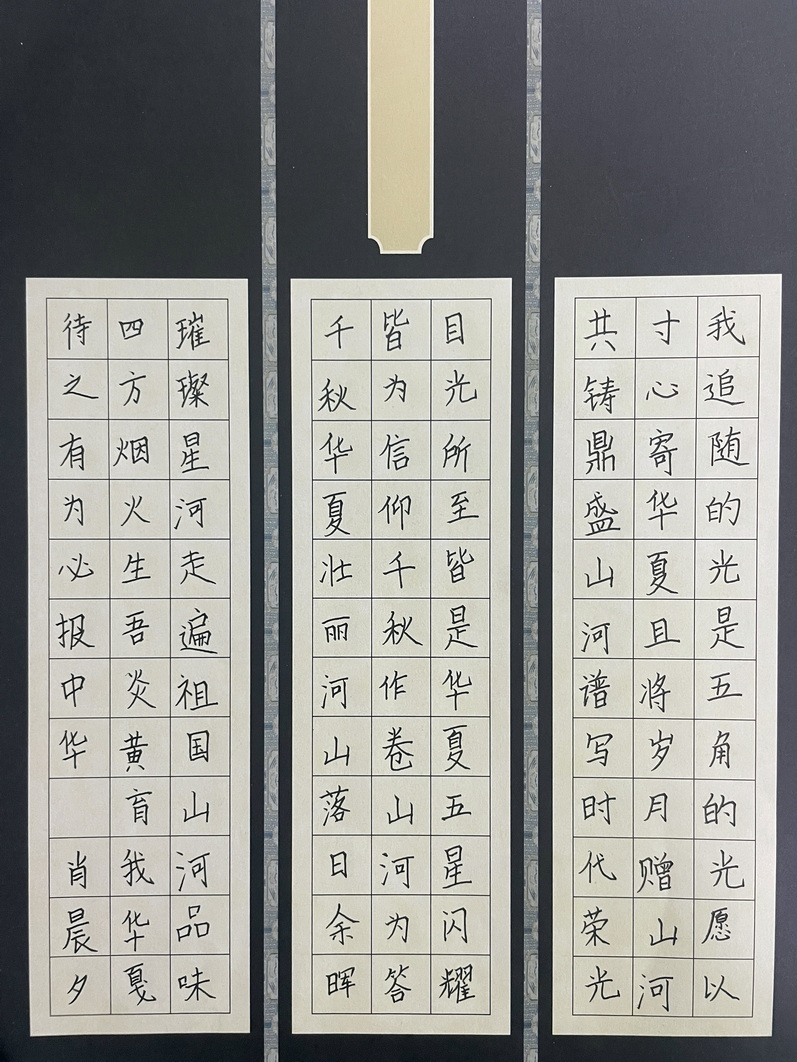 我追随的光是五角的光愿以
寸心寄华夏且将岁月赠山河
共铸鼎盛山河谱写时代荣光
目光所至皆是华夏五星闪耀
皆为信仰千秋作卷山河为答
千秋华夏壮丽河山落日余晖
璀璨星河走遍祖国山河品味
四方烟火生吾炎黄育我华戛
待之有为必报中华 肖晨夕